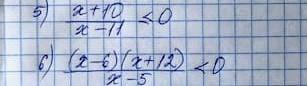 5) (x+10)/(x-11) ≤ 0
6) ((x-6)(x+12))/(x-5) < 0